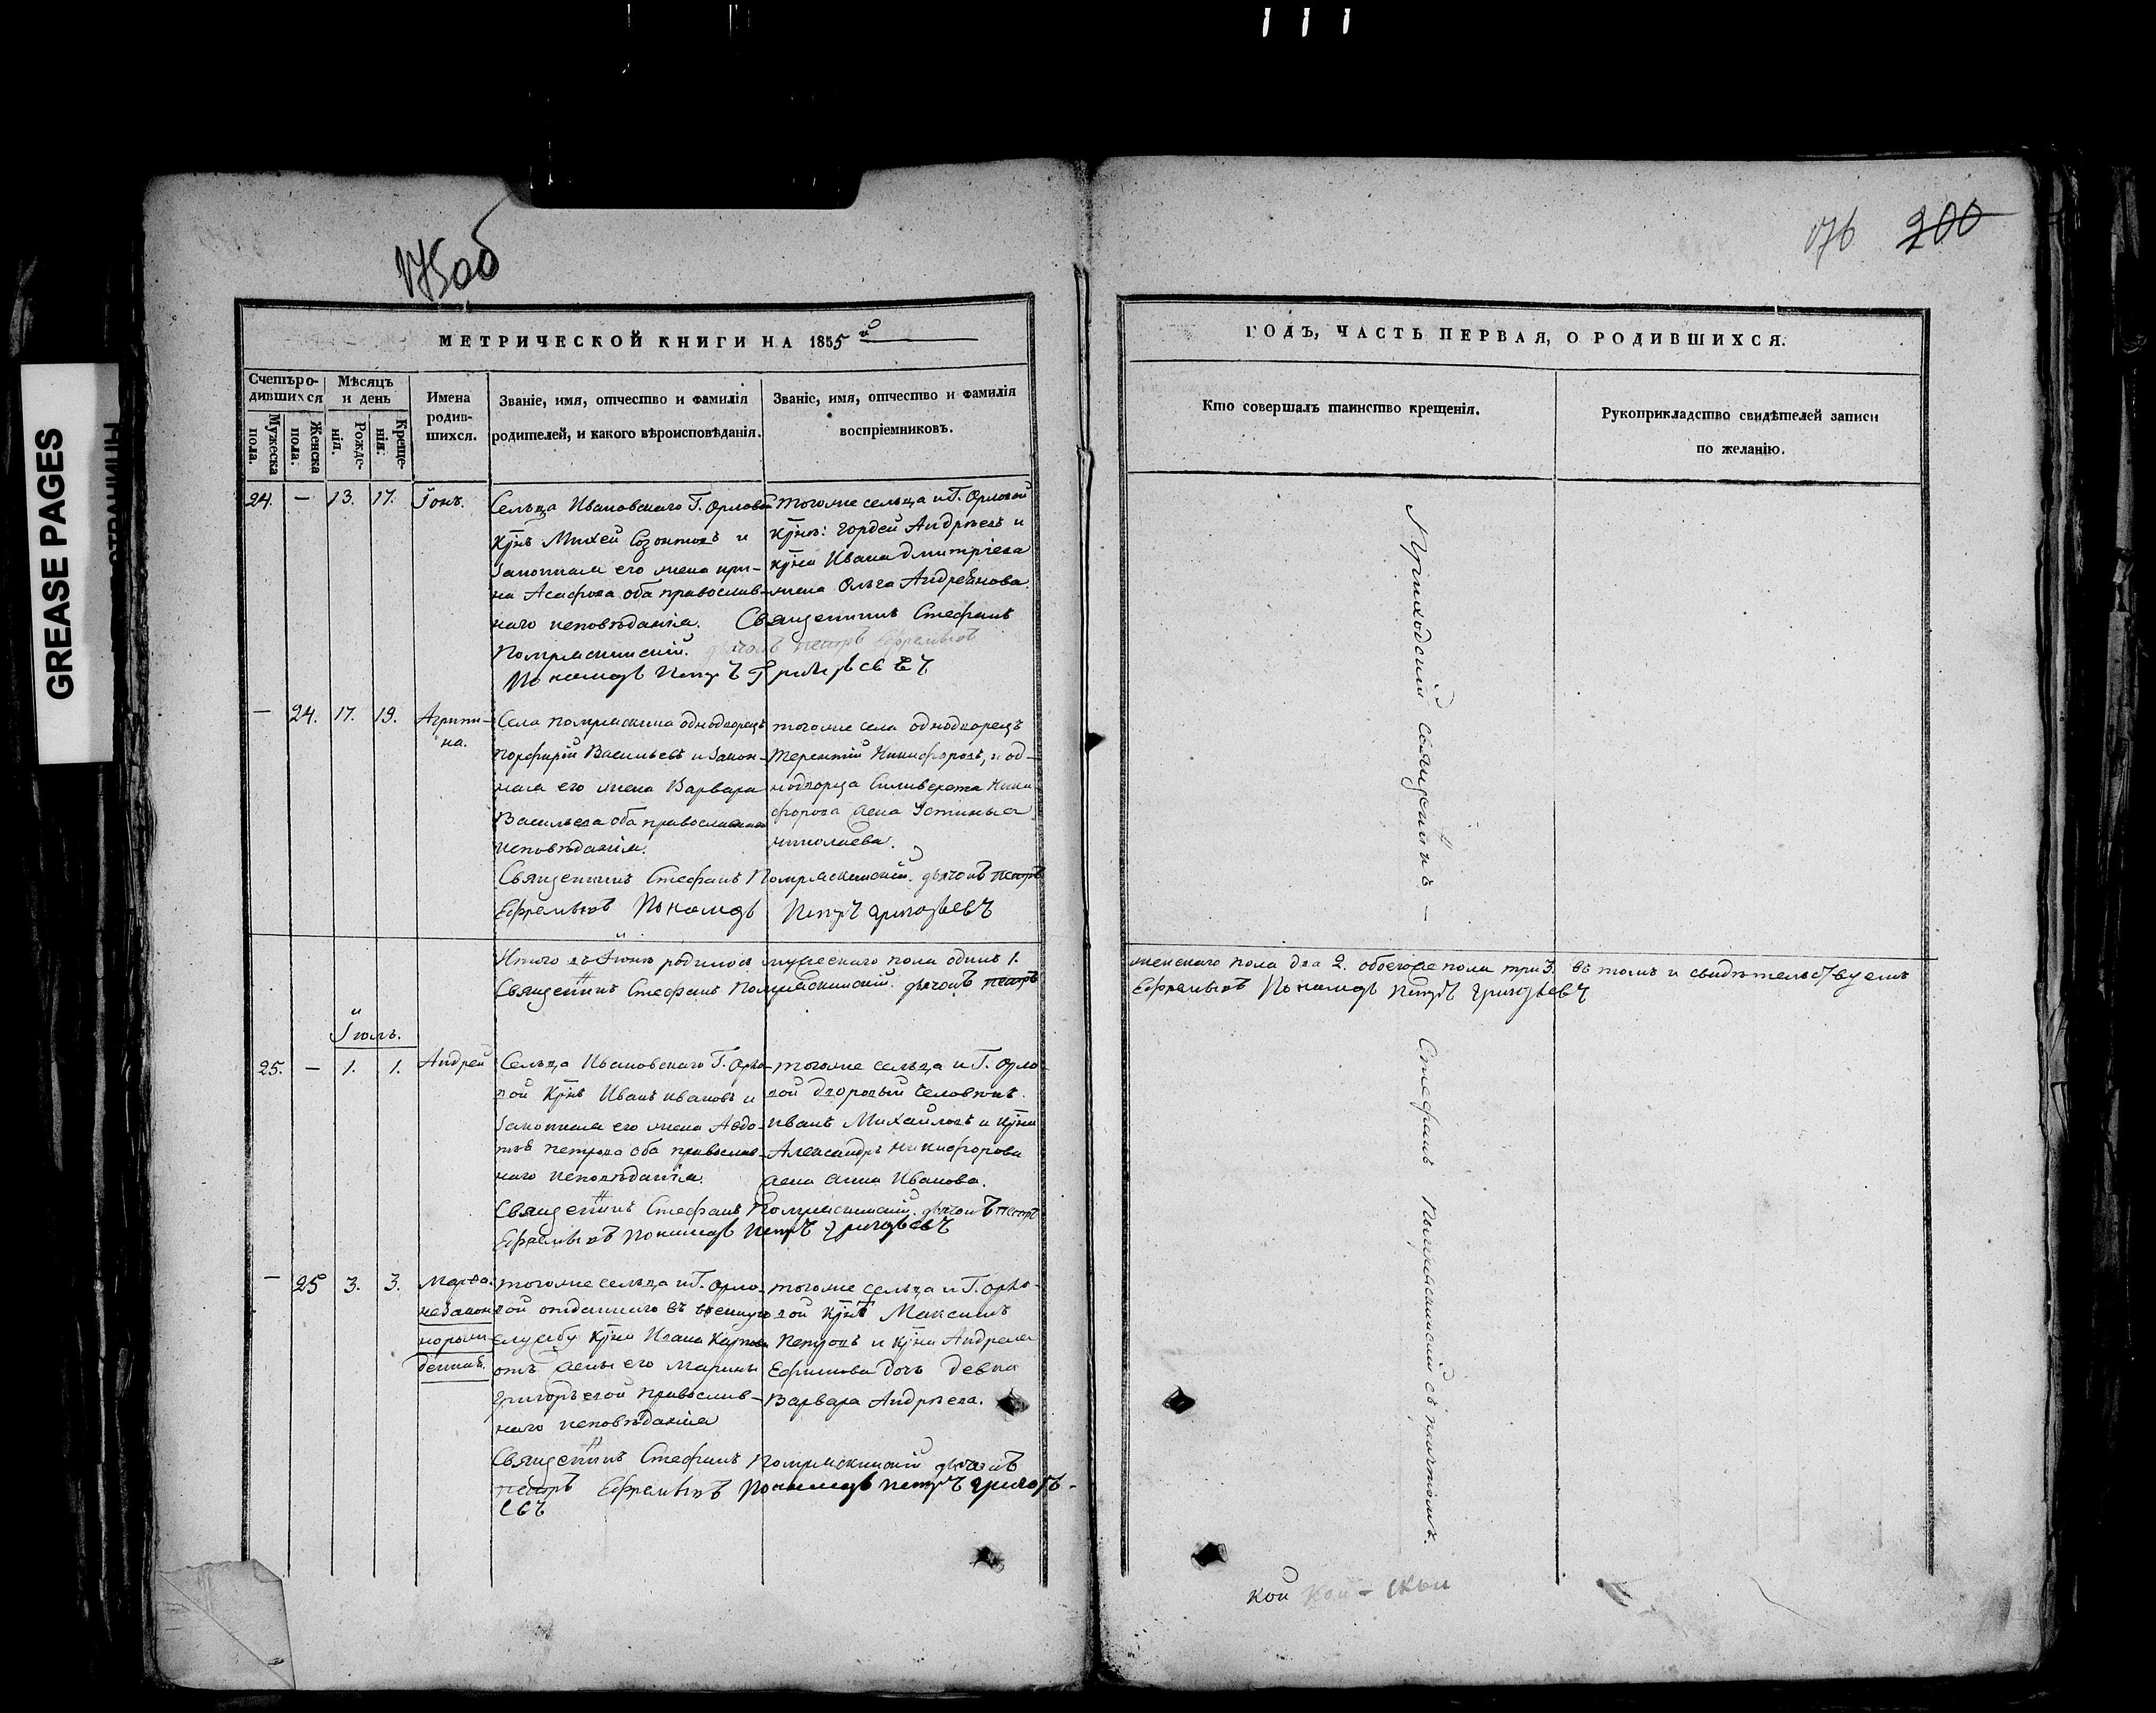 GREASE PAGES
175об
176 200
МЕТРИЧЕСКОЙ КНИГИ НА 1855 й
ГОДЪ, ЧАСТЬ ПЕРВАЯ, О РОДИВШИХСЯ.
Счетъ родившихся
Мѣсяцъ и день
Имена родившихся.
Званіе, имя, отчество и фамилія родителей, и какого вѣроисповѣданія.
Званіе, имя, отчество и фамилія воспріемниковъ.
Мужеска пола.
Женска пола.
Рожденія.
Крещенія.
Кто совершалъ таинство крещенія.
Рукоприкладство свидѣтелей записи
по желанію.
24. — 13. 17. Іонъ.
Сельца Ивановскаго Г. Орловой
Кр͠нъ Михей Созонтовъ и
законная его жена Ири-
на Асафова оба православ-
наго исповѣданія.
тогоже сельца и Г. Орловой
Кр͠нъ: Гордей Андрѣевъ и
кр͠на Ивана Дмитріева
жена Ольга Андреянова
Священникъ Стефанъ
Помряскинскій. дьячокъ петръ Ефремовъ
Пономарь Петръ Григорьевъ
— 24. 17. 19. Агрипи-
на.
Села помряскина однодворецъ
порфирій Васильевъ и закон-
ная его жена Варвара
Васильева оба православнаго
исповѣданія.
тогоже села однодворецъ
Терентій Никифоровъ, и од-
нодворца Сильверста Ники-
форова жена Устинья
николаева.
Священникъ Стефанъ Помряскинскій. дьячокъ петръ
Ефремовъ Пономарь Петръ Григорьевъ
Итого въ Іюнѣ родилось мужескаго пола одинъ 1.
женскаго пола два 2. обоегоже пола три 3. въ томъ и свидѣтельствуемъ
Священникъ Стефанъ Помряскинскій. дьячокъ петръ
Ефремовъ Пономарь Петръ Григорьевъ
Іюль.
25. — 1. 1. Андрей
Сельца Ивановскаго Г. Орло-
вой Кр͠нъ Иванъ Ивановъ и
законная его жена Авдо-
тья петрова оба православ-
наго исповѣданія.
тогоже сельца и Г. Орло-
вой дворовый человѣкъ.
Иванъ Михайловъ и кр͠на
Александра Никифорова
жена Анна Иванова.
Священникъ Стефанъ Помряскинскій. дьячокъ петръ
Ефремовъ Пономарь Петръ Григорьевъ
— 25 3. 3. Марѳа.
незакон
норож
денная.
тогоже сельца и Г. Орло-
вой отданнаго въ военную
службу кр͠на Ивана Карпова
отъ жены его Марины
Григорьевой православ-
наго исповѣданія
тогоже сельца и Г. Орло-
вой кр͠нъ Максимъ
Петровъ и кр͠на Андрея
Ефимова дочь девка
Варвара Андрѣева.
Священникъ Стефанъ Помряскинскій дьячокъ
петръ Ефремовъ Пономарь петръ Григорь-
евъ
Приходскій Священникъ —
Стефанъ Помряскинскій съ причтомъ.
кой кой -